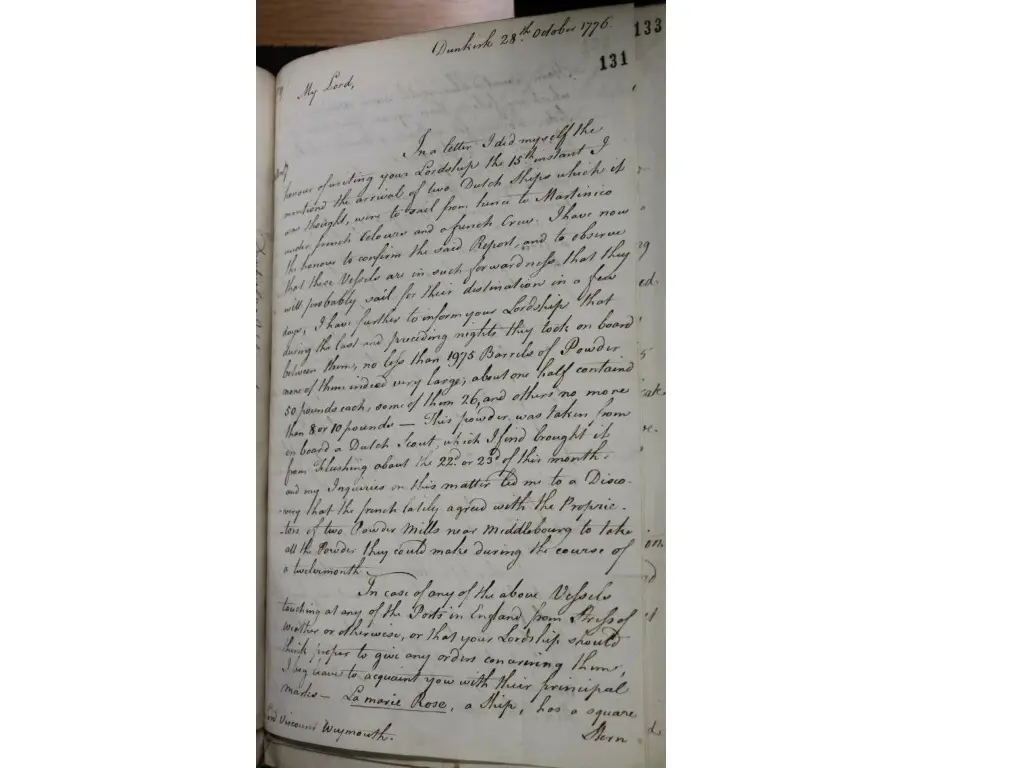 Dunkirk 28th October 1776.
133
131
My Lord,
In a letter I did myself the
honour of writing your Lordship the 15th instant I
mentiond the arrival of two Dutch Ships which it
was thought, were to sail from hence to Martinico
under french Colours and a french Crew. I have now
the honour to confirm the said Report, and to observe
that these Vessels are in such forwardness that they
will probably sail for their destination in a few
days, I have further to inform your Lordship that
during the last and preceding nights they took on board
between them, no less than 1975 Barrels of Powder
none of them indeed very large; about one half containd
50 pounds each, some of them 26, and others no more
than 8 or 10 pounds — This powder was taken from
on board a Dutch Scout, which I find brought it
from Flushing about the 22d. or 23d of this month.
and my Inquiries on this matter led me to a Disco-
-very that the french lately agreed with the Proprie-
-tors of two Powder Mills near Middlebourg to take
all the Powder they could make during the course of
a twelvemonth.
In case of any of the above Vessels
touching at any of the Ports in England from Stress of
weather or otherwise, or that your Lordship should
think proper to give any orders concerning them,
I beg leave to acquaint you with their principal
marks — La marie Rose, a Ship, has a square
Stern
Lord Viscount Weymouth.